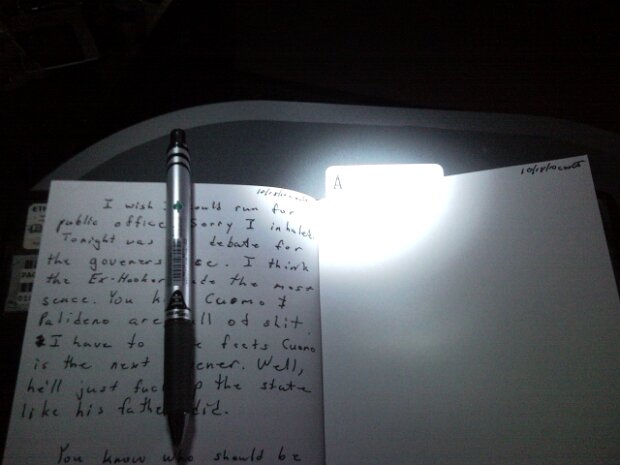 I wish I could run for
public office Sorry I inhaled
Tonight was debate for
the governers I think
the Ex-Hooker the most
sence. You Cuomo &
Palideno are all of shit.
I have to feets Cuomo
is the next Well,
he'll just fuck up the state
like his father did.
You know who should be
A